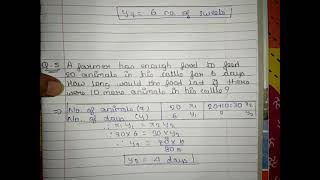 y₂ = 6 no. of sweets
Q.5 A farmer has enough food to feed
20 animals in his cattle for 6 days
How long would the food last if there
were 10 more animals in his cattle?
⇒ No. of animals (x) | 20 x₁ | 20+10=30 x₂
No. of days (y) | 6 y₁ | y₂
∴ x₁ y₁ = x₂ y₂
∴ 20×6 = 30×y₂
∴ y₂ = 20×6
30
y₂ = 4 days